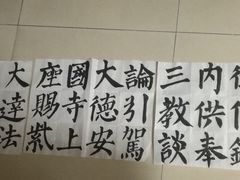 内供奉
三教談
論引駕
大德安
國寺上
座賜紫
大達法